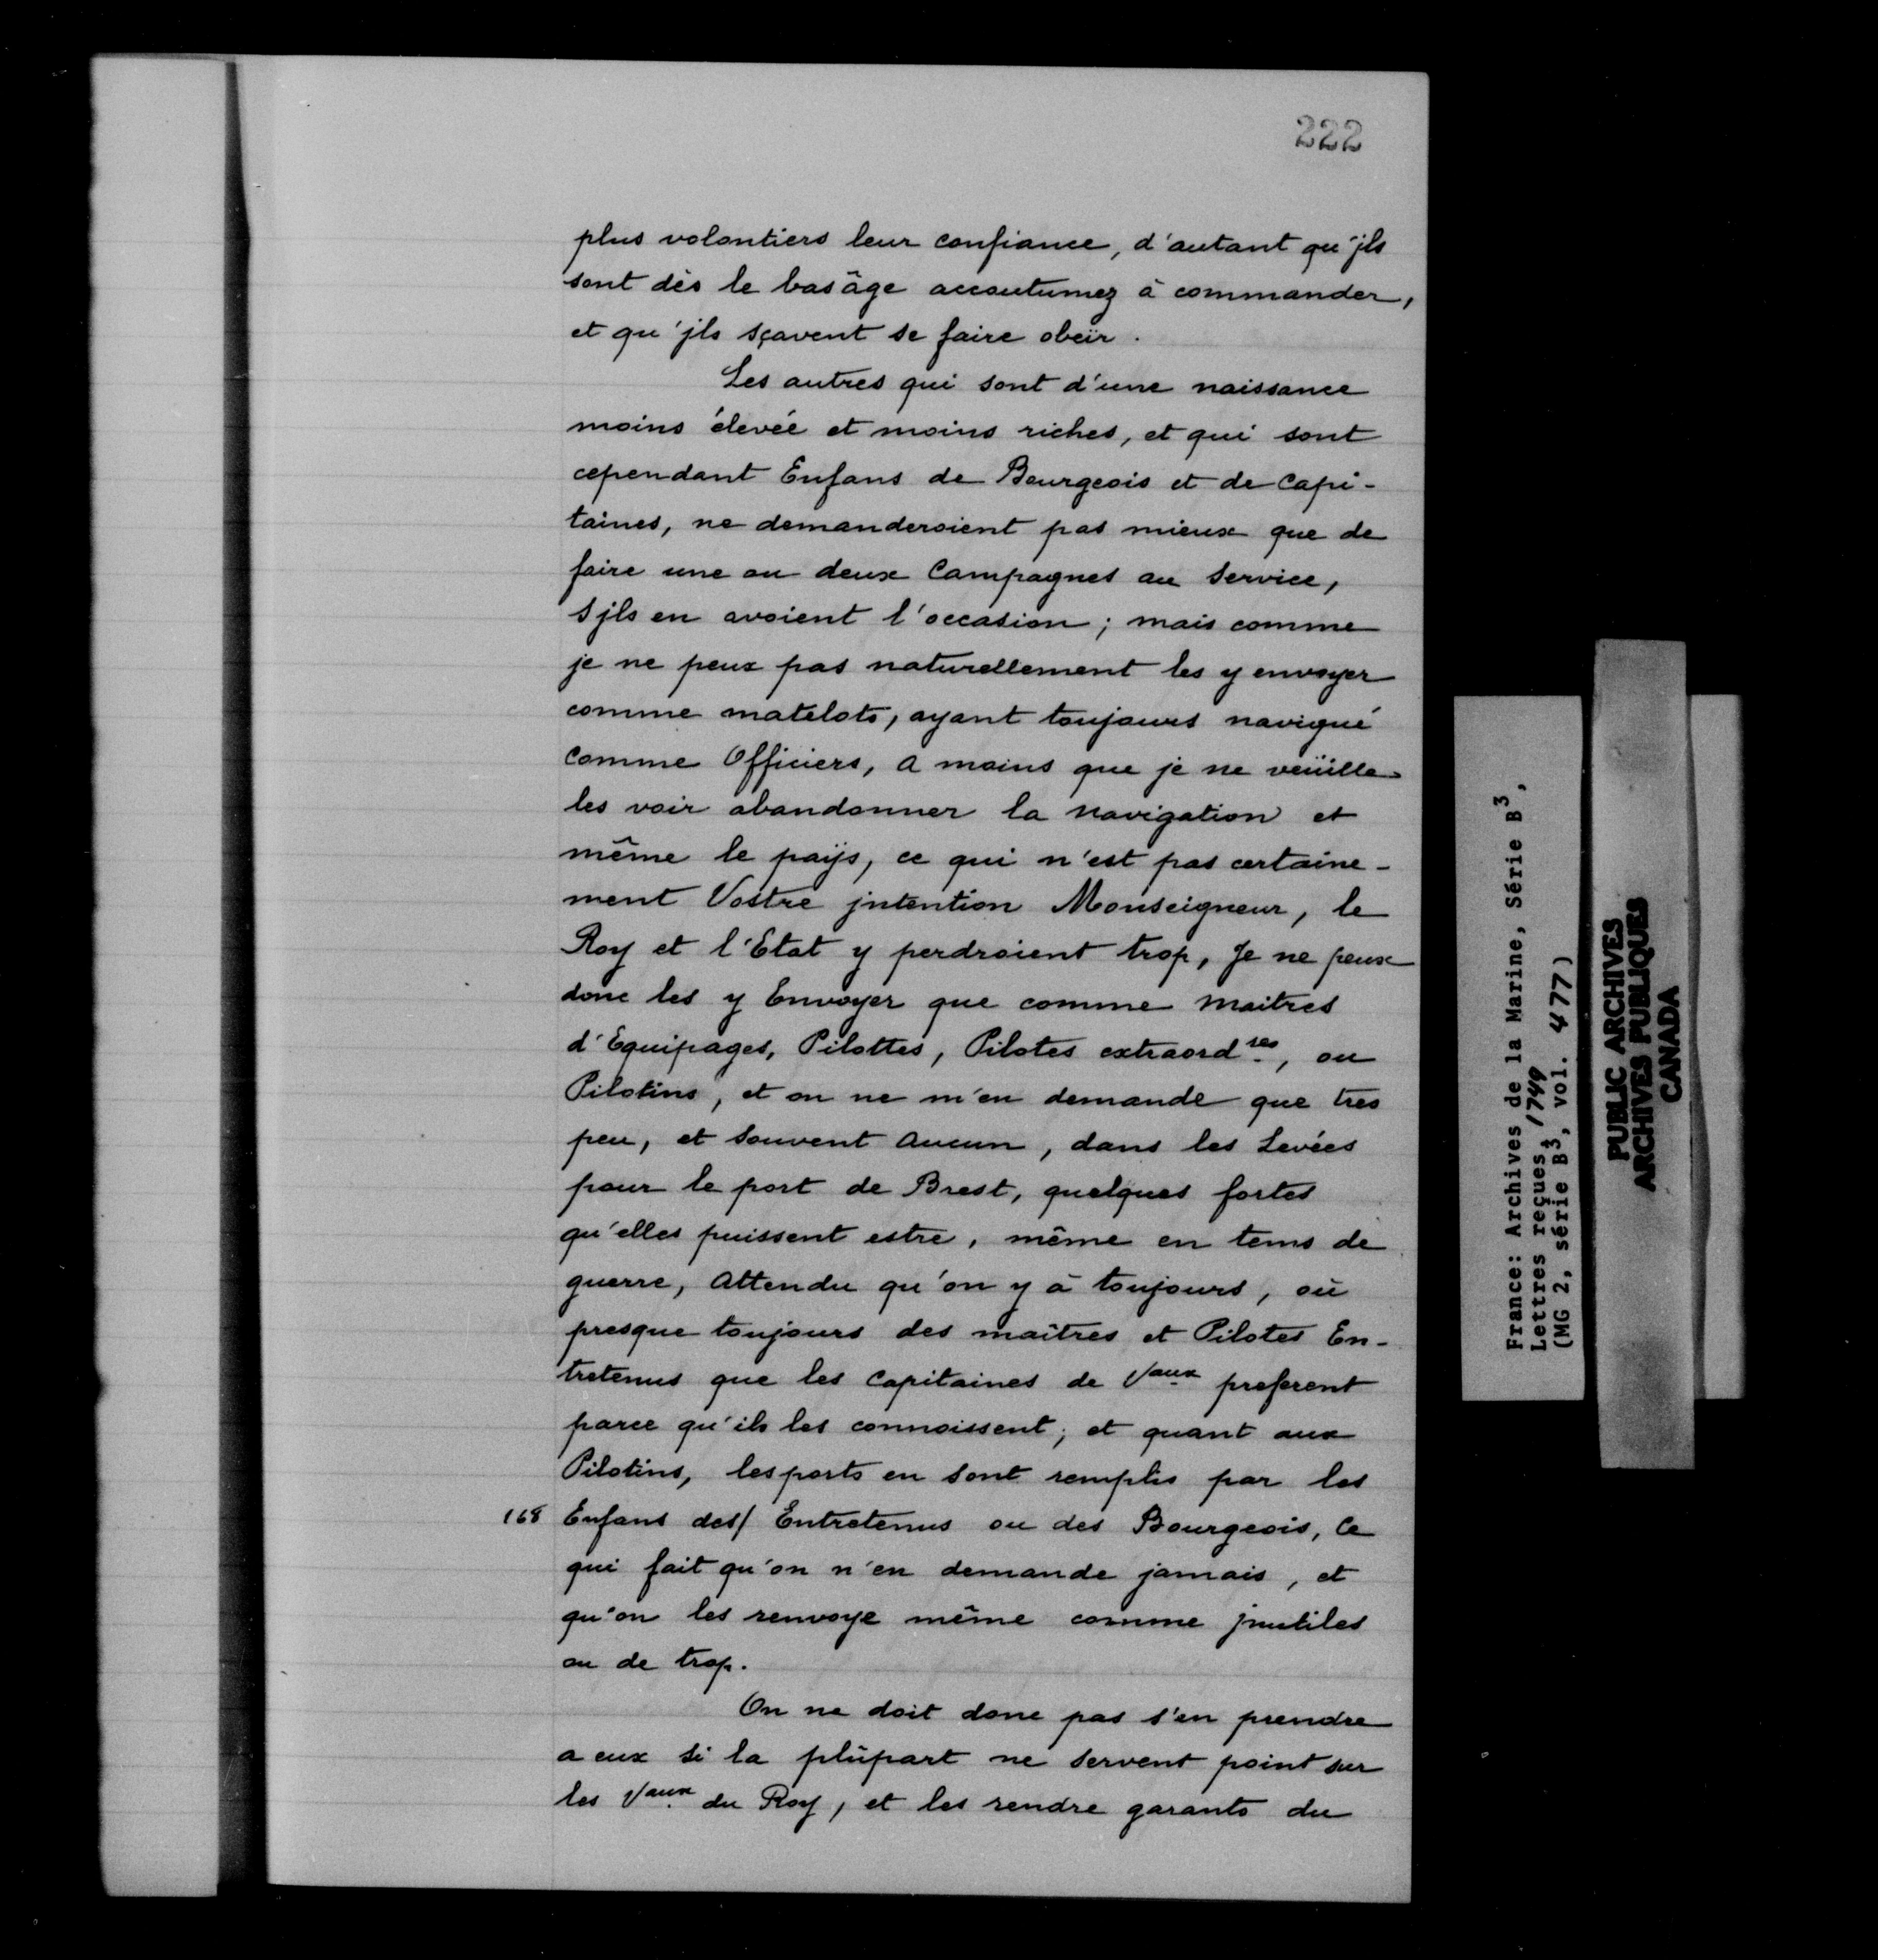 222
plus volontiers leur confiance, d'autant qu'jls
sont dès le bas âge accoutumez à commander,
et qu'jls sçavent se faire obeïr.
Les autres qui sont d'une naissance
moins élevée et moins riches, et qui sont
cependant Enfans de Bourgeois et de Capi-
taines, ne demanderoient pas mieux que de
faire une ou deux Campagnes au Service,
S jls en avoient l'occasion ; mais comme
je ne peux pas naturellement les y envoyer
comme matelots, ayant toujours navigué
comme Officiers, a moins que je ne veüille
les voir abandonner la navigation et
même le païs, ce qui n'est pas certaine-
ment Vostre jntention Monseigneur, le
Roy et l'Etat y perdroient trop, Je ne peux
donc les y Envoyer que comme maitres
d'Equipages, Pilottes, Pilotes extraord.res, ou
Pilotins, et on ne m'en demande que tres
peu, et souvent aucun, dans les Levées
pour le port de Brest, quelques fortes
qu'elles puissent estre, même en tems de
guerre, attendu qu'on y à toujours, où
presque toujours des maîtres et Pilotes En-
tretenus que les Capitaines de Vaux preferent
parce qu'ils les connoissent ; et quant aux
Pilotins, les ports en sont remplis par les
168 Enfans des/ Entretenus ou des Bourgeois, Ce
qui fait qu'on n'en demande jamais, et
qu'on les renvoye même comme jnutiles
ou de trop.
On ne doit donc pas s'en prendre
a eux si la plûpart ne servent point sur
les Vaux du Roy, et les rendre garants du
France: Archives de la Marine, Série B3,
Lettres reçues, 1749
(MG 2, série B3, vol. 477)
PUBLIC ARCHIVES
ARCHIVES PUBLIQUES
CANADA